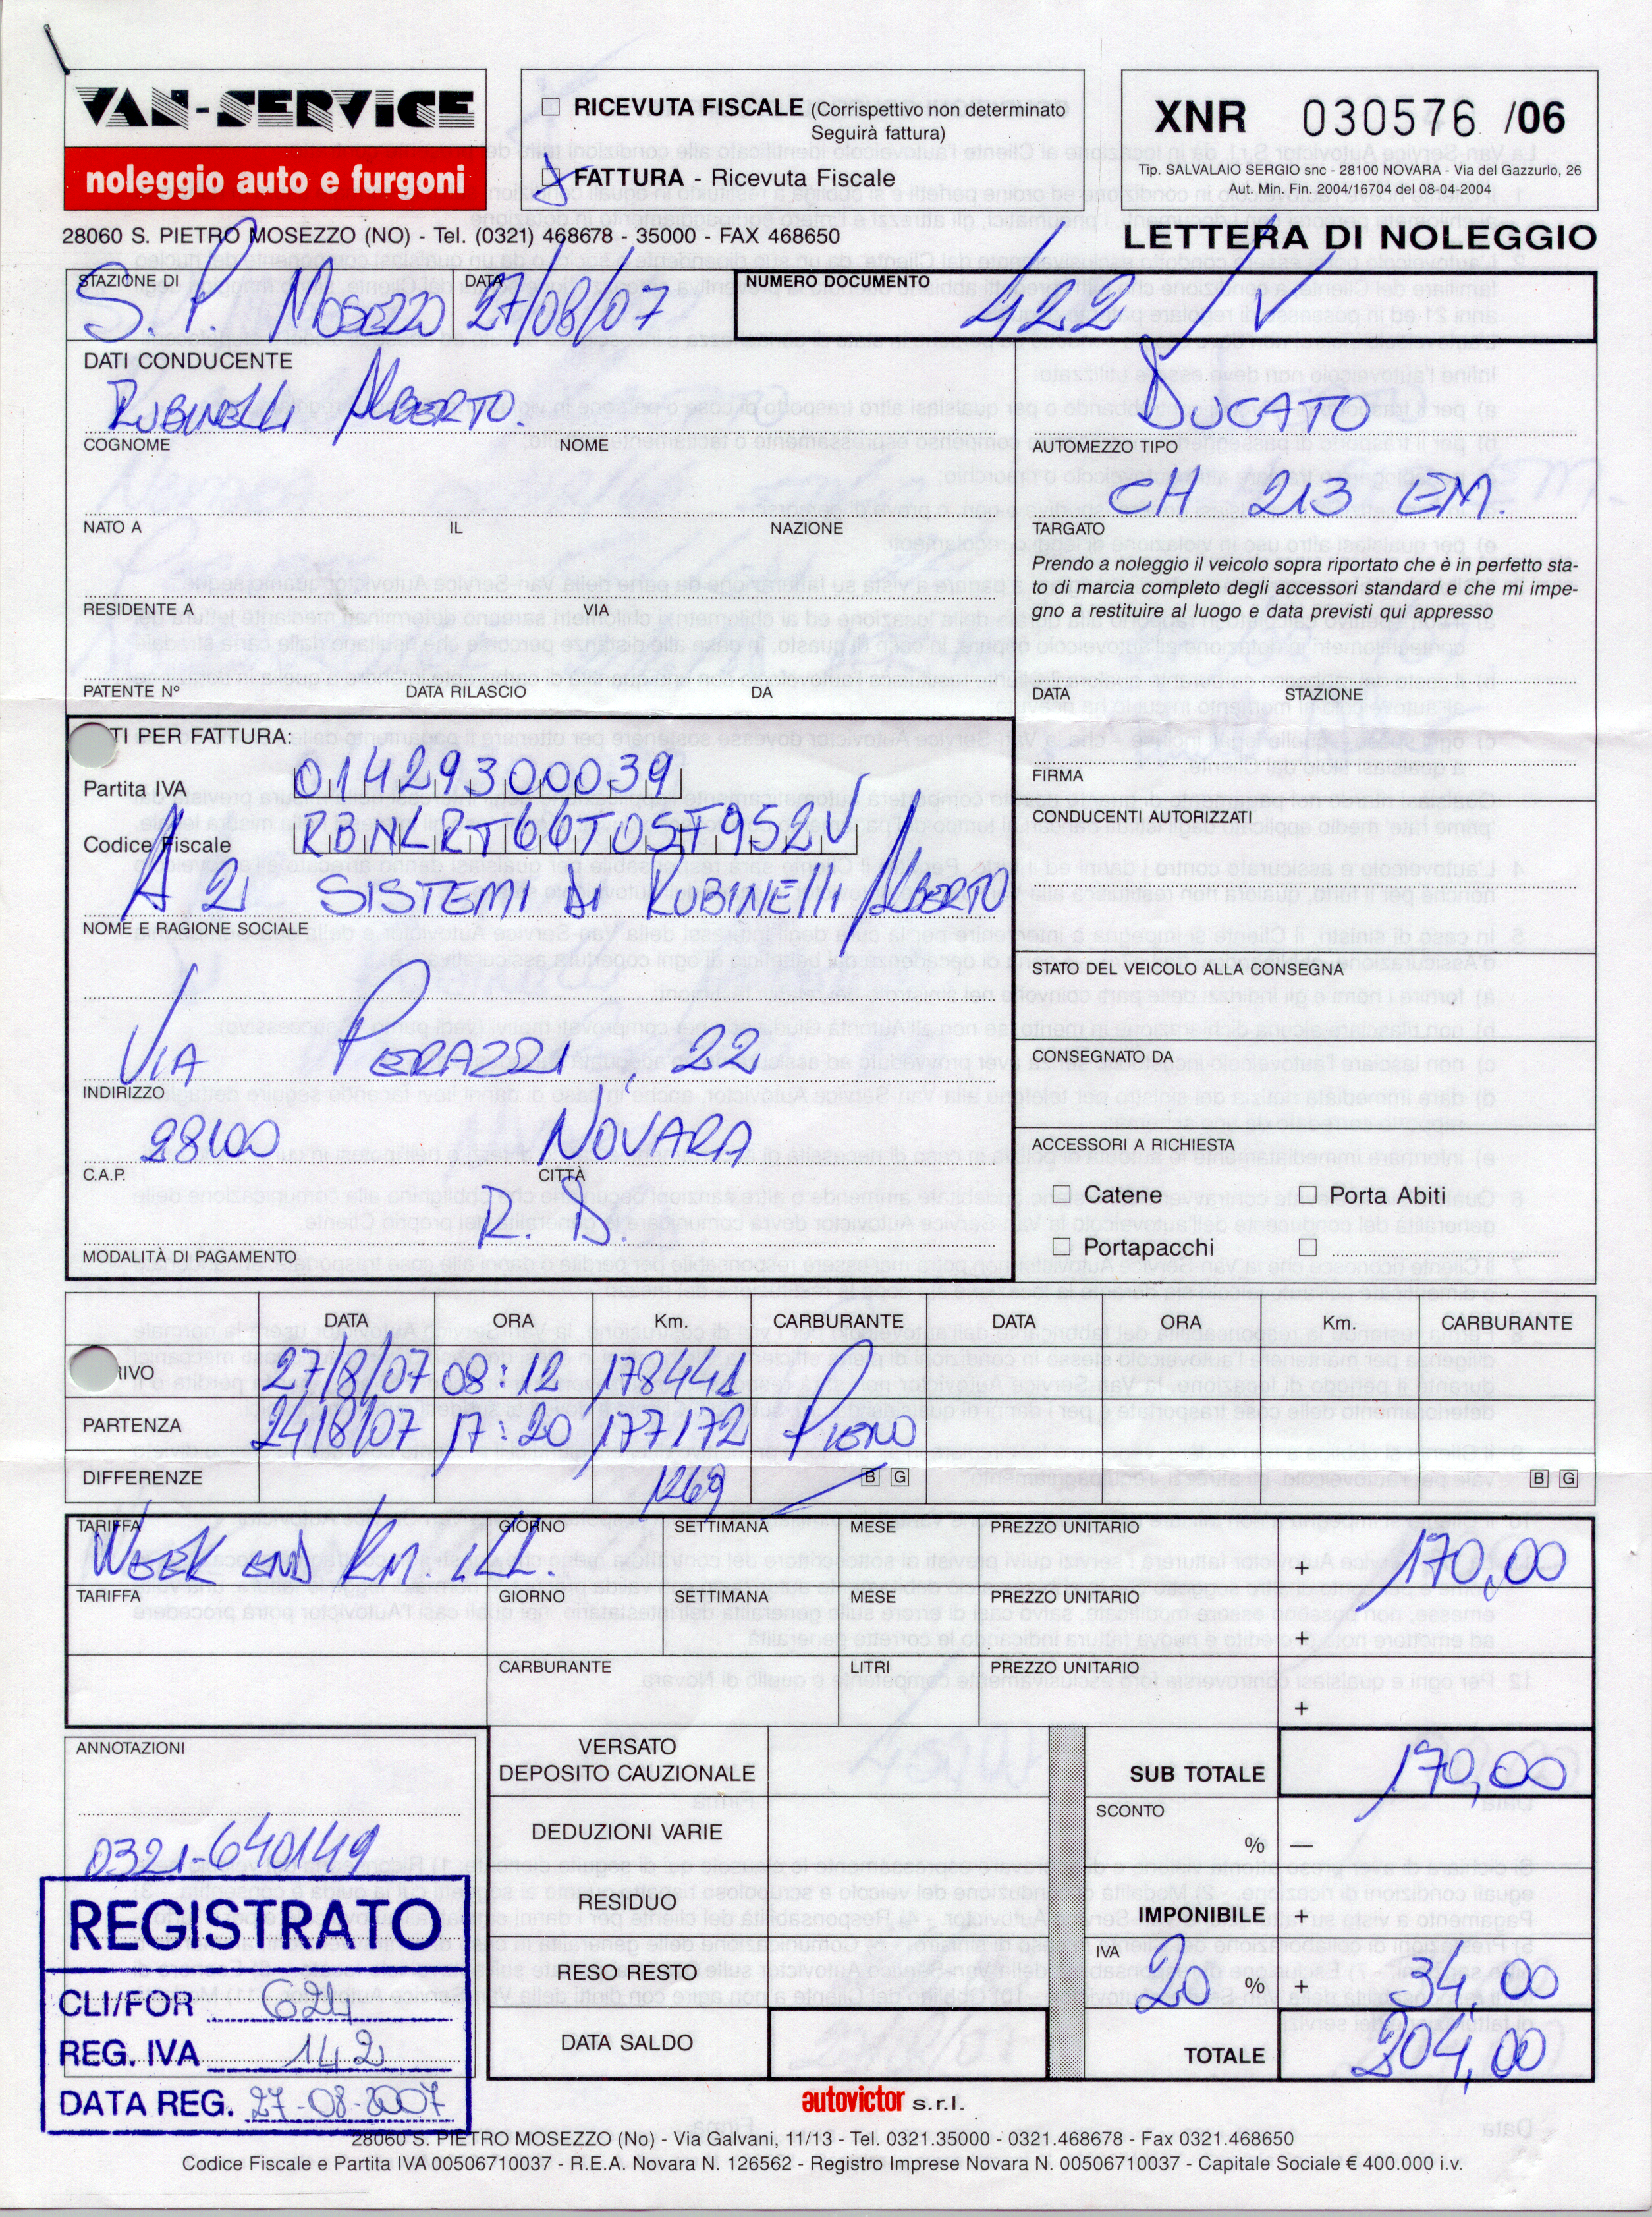 VAN-SERVICE
noleggio auto e furgoni
RICEVUTA FISCALE (Corrispettivo non determinato
Seguirà fattura)
FATTURA - Ricevuta Fiscale
XNR 030576 /06
Tip. SALVALAIO SERGIO snc - 28100 NOVARA - Via del Gazzurlo, 26
Aut. Min. Fin. 2004/16704 del 08-04-2004
28060 S. PIETRO MOSEZZO (NO) - Tel. (0321) 468678 - 35000 - FAX 468650
LETTERA DI NOLEGGIO
STAZIONE DI DATA NUMERO DOCUMENTO
S. P. MOSEZZO 27/08/07 422 / V
DATI CONDUCENTE
RUBINELLI ALBERTO.
COGNOME NOME
NATO A IL NAZIONE
RESIDENTE A VIA
PATENTE Nº DATA RILASCIO DA
DUCATO
AUTOMEZZO TIPO
CH 213 EM.
TARGATO
Prendo a noleggio il veicolo sopra riportato che è in perfetto sta-
to di marcia completo degli accessori standard e che mi impe-
gno a restituire al luogo e data previsti qui appresso
DATA STAZIONE
FIRMA
CONDUCENTI AUTORIZZATI
STATO DEL VEICOLO ALLA CONSEGNA
CONSEGNATO DA
ACCESSORI A RICHIESTA
Catene Porta Abiti
Portapacchi
TI PER FATTURA:
Partita IVA 01429300039
Codice Fiscale RBNLRT66T05F952V
A 21 SISTEMI DI RUBINELLI ALBERTO
NOME E RAGIONE SOCIALE
VIA PERAZZI, 22
INDIRIZZO
28100 NOVARA
C.A.P. CITTÀ
R. D.
MODALITÀ DI PAGAMENTO
DATA ORA Km. CARBURANTE DATA ORA Km. CARBURANTE
RIVO 27/8/07 08:12 178441
PARTENZA 24/8/07 17:20 177172 PIENO
DIFFERENZE 1269 B G B G
TARIFFA GIORNO SETTIMANA MESE PREZZO UNITARIO
WEEK END KM. ILL. + 170,00
TARIFFA GIORNO SETTIMANA MESE PREZZO UNITARIO
+
CARBURANTE LITRI PREZZO UNITARIO
+
ANNOTAZIONI
0321-640149
REGISTRATO
CLI/FOR 624
REG. IVA 142
DATA REG. 27-08-2007
VERSATO
DEPOSITO CAUZIONALE
DEDUZIONI VARIE
RESIDUO
RESO RESTO
DATA SALDO
SUB TOTALE 170,00
SCONTO
% —
IMPONIBILE +
IVA
20 % + 34,00
TOTALE 204,00
autovictor s.r.l.
28060 S. PIETRO MOSEZZO (No) - Via Galvani, 11/13 - Tel. 0321.35000 - 0321.468678 - Fax 0321.468650
Codice Fiscale e Partita IVA 00506710037 - R.E.A. Novara N. 126562 - Registro Imprese Novara N. 00506710037 - Capitale Sociale € 400.000 i.v.